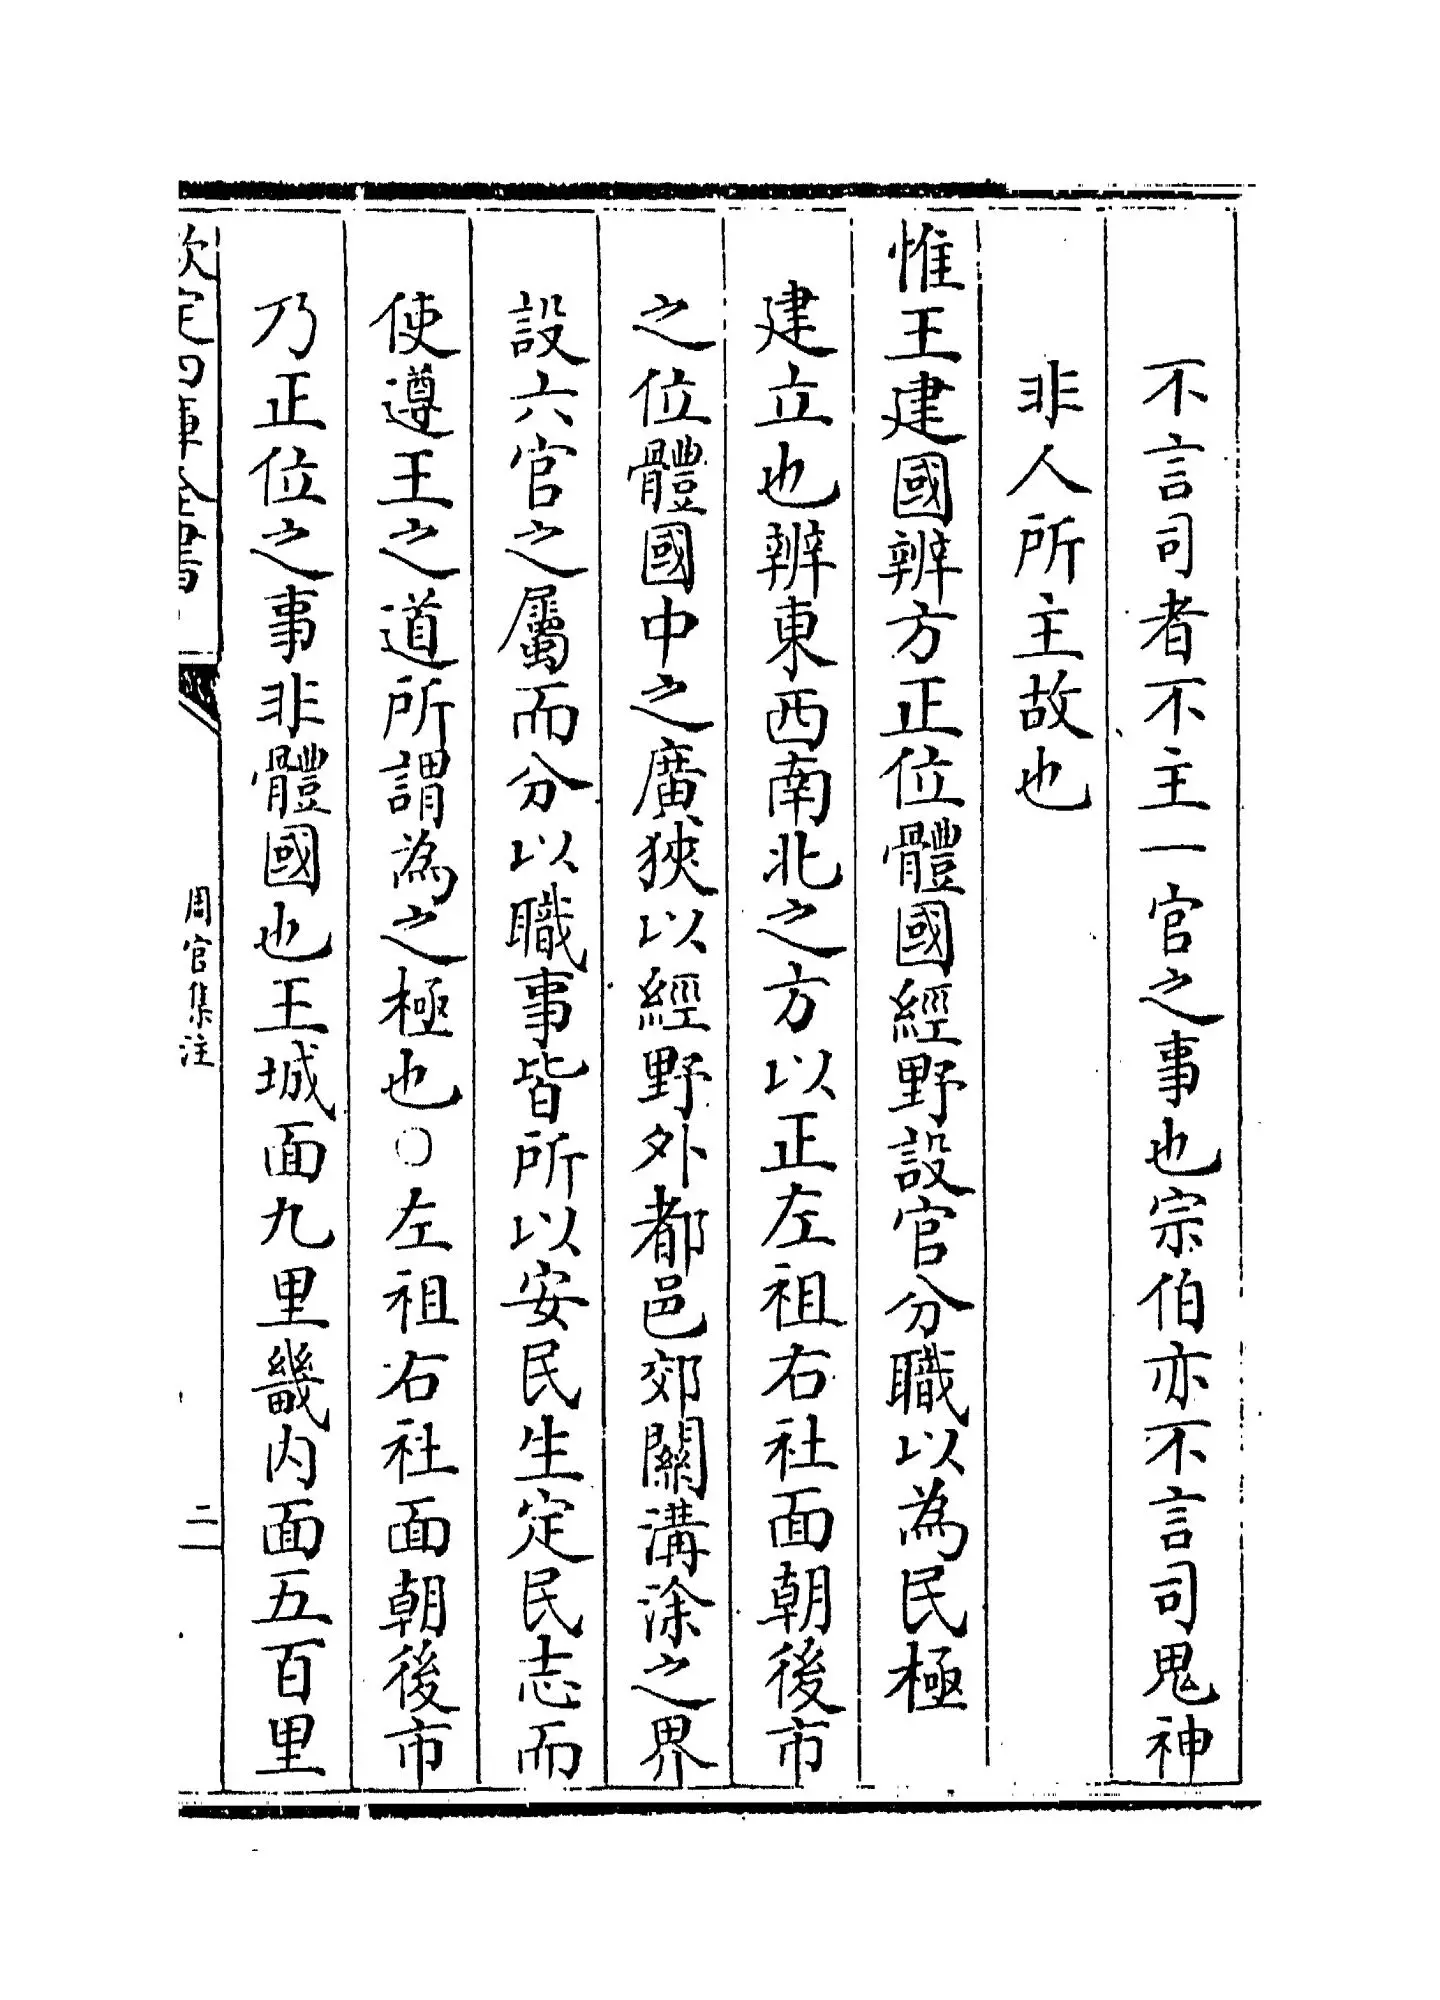 不言司者不主一官之事也宗伯亦不言司鬼神
非人所主故也
惟王建國辨方正位體國經野設官分職以為民極
建立也辨東西南北之方以正左祖右社面朝後市
之位體國中之廣狹以經野外都邑郊關溝涂之界
設六官之屬而分以職事皆所以安民生定民志而
使遵王之道所謂為之極也○左祖右社面朝後市
乃正位之事非體國也王城面九里畿内面五百里
欽定四庫全書
周官集注
二